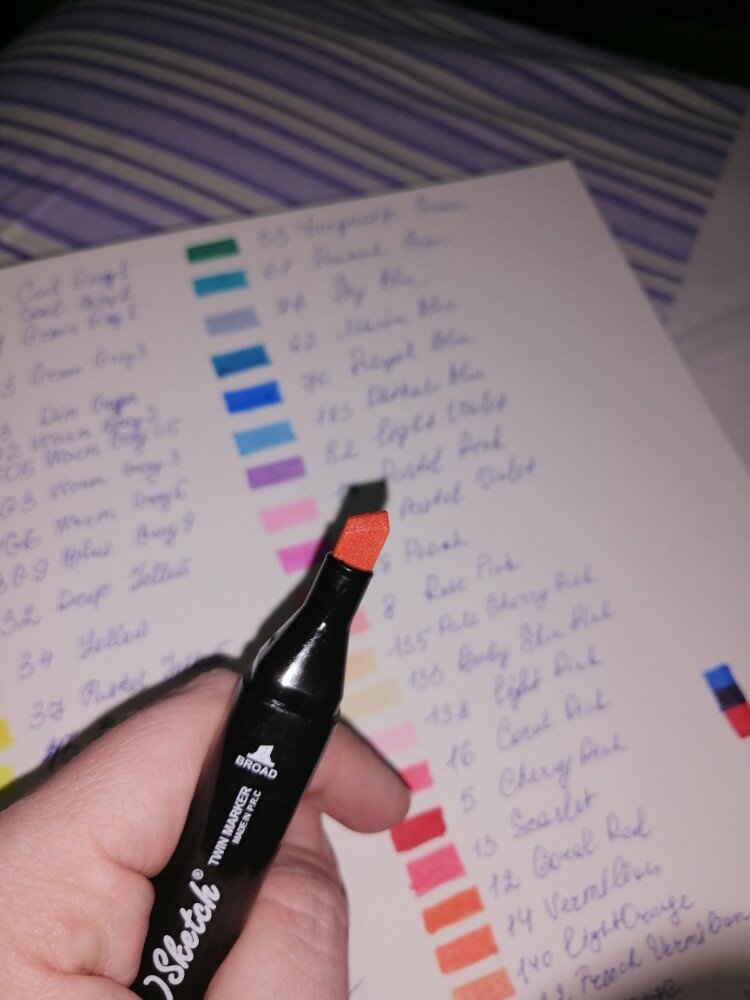 Cool Grey 2
Green Grey 3
Warm Grey 2
Warm Grey 05
Warm Grey 3
Warm Grey 6
Blue Grey 8
32 Deep Yellow
34 Yellow
37 Pastel Yellow
53 Turquoise Green
Sky Blue
62 Marin Blue
70 Royal Blue
183 Phthalo Blue
82 Light Violet
Pastel Pink
Pastel Violet
Peach
8 Rose Pink
135 Pale Cherry Pink
Baby Skin Pink
138 Light Pink
16 Coral Pink
5 Cherry Pink
13 Scarlet
12 Coral Red
14 Vermilion
140 Light Orange
French Vermilion
BROAD
TWIN MARKER
MADE IN P.R.C
Sketch®